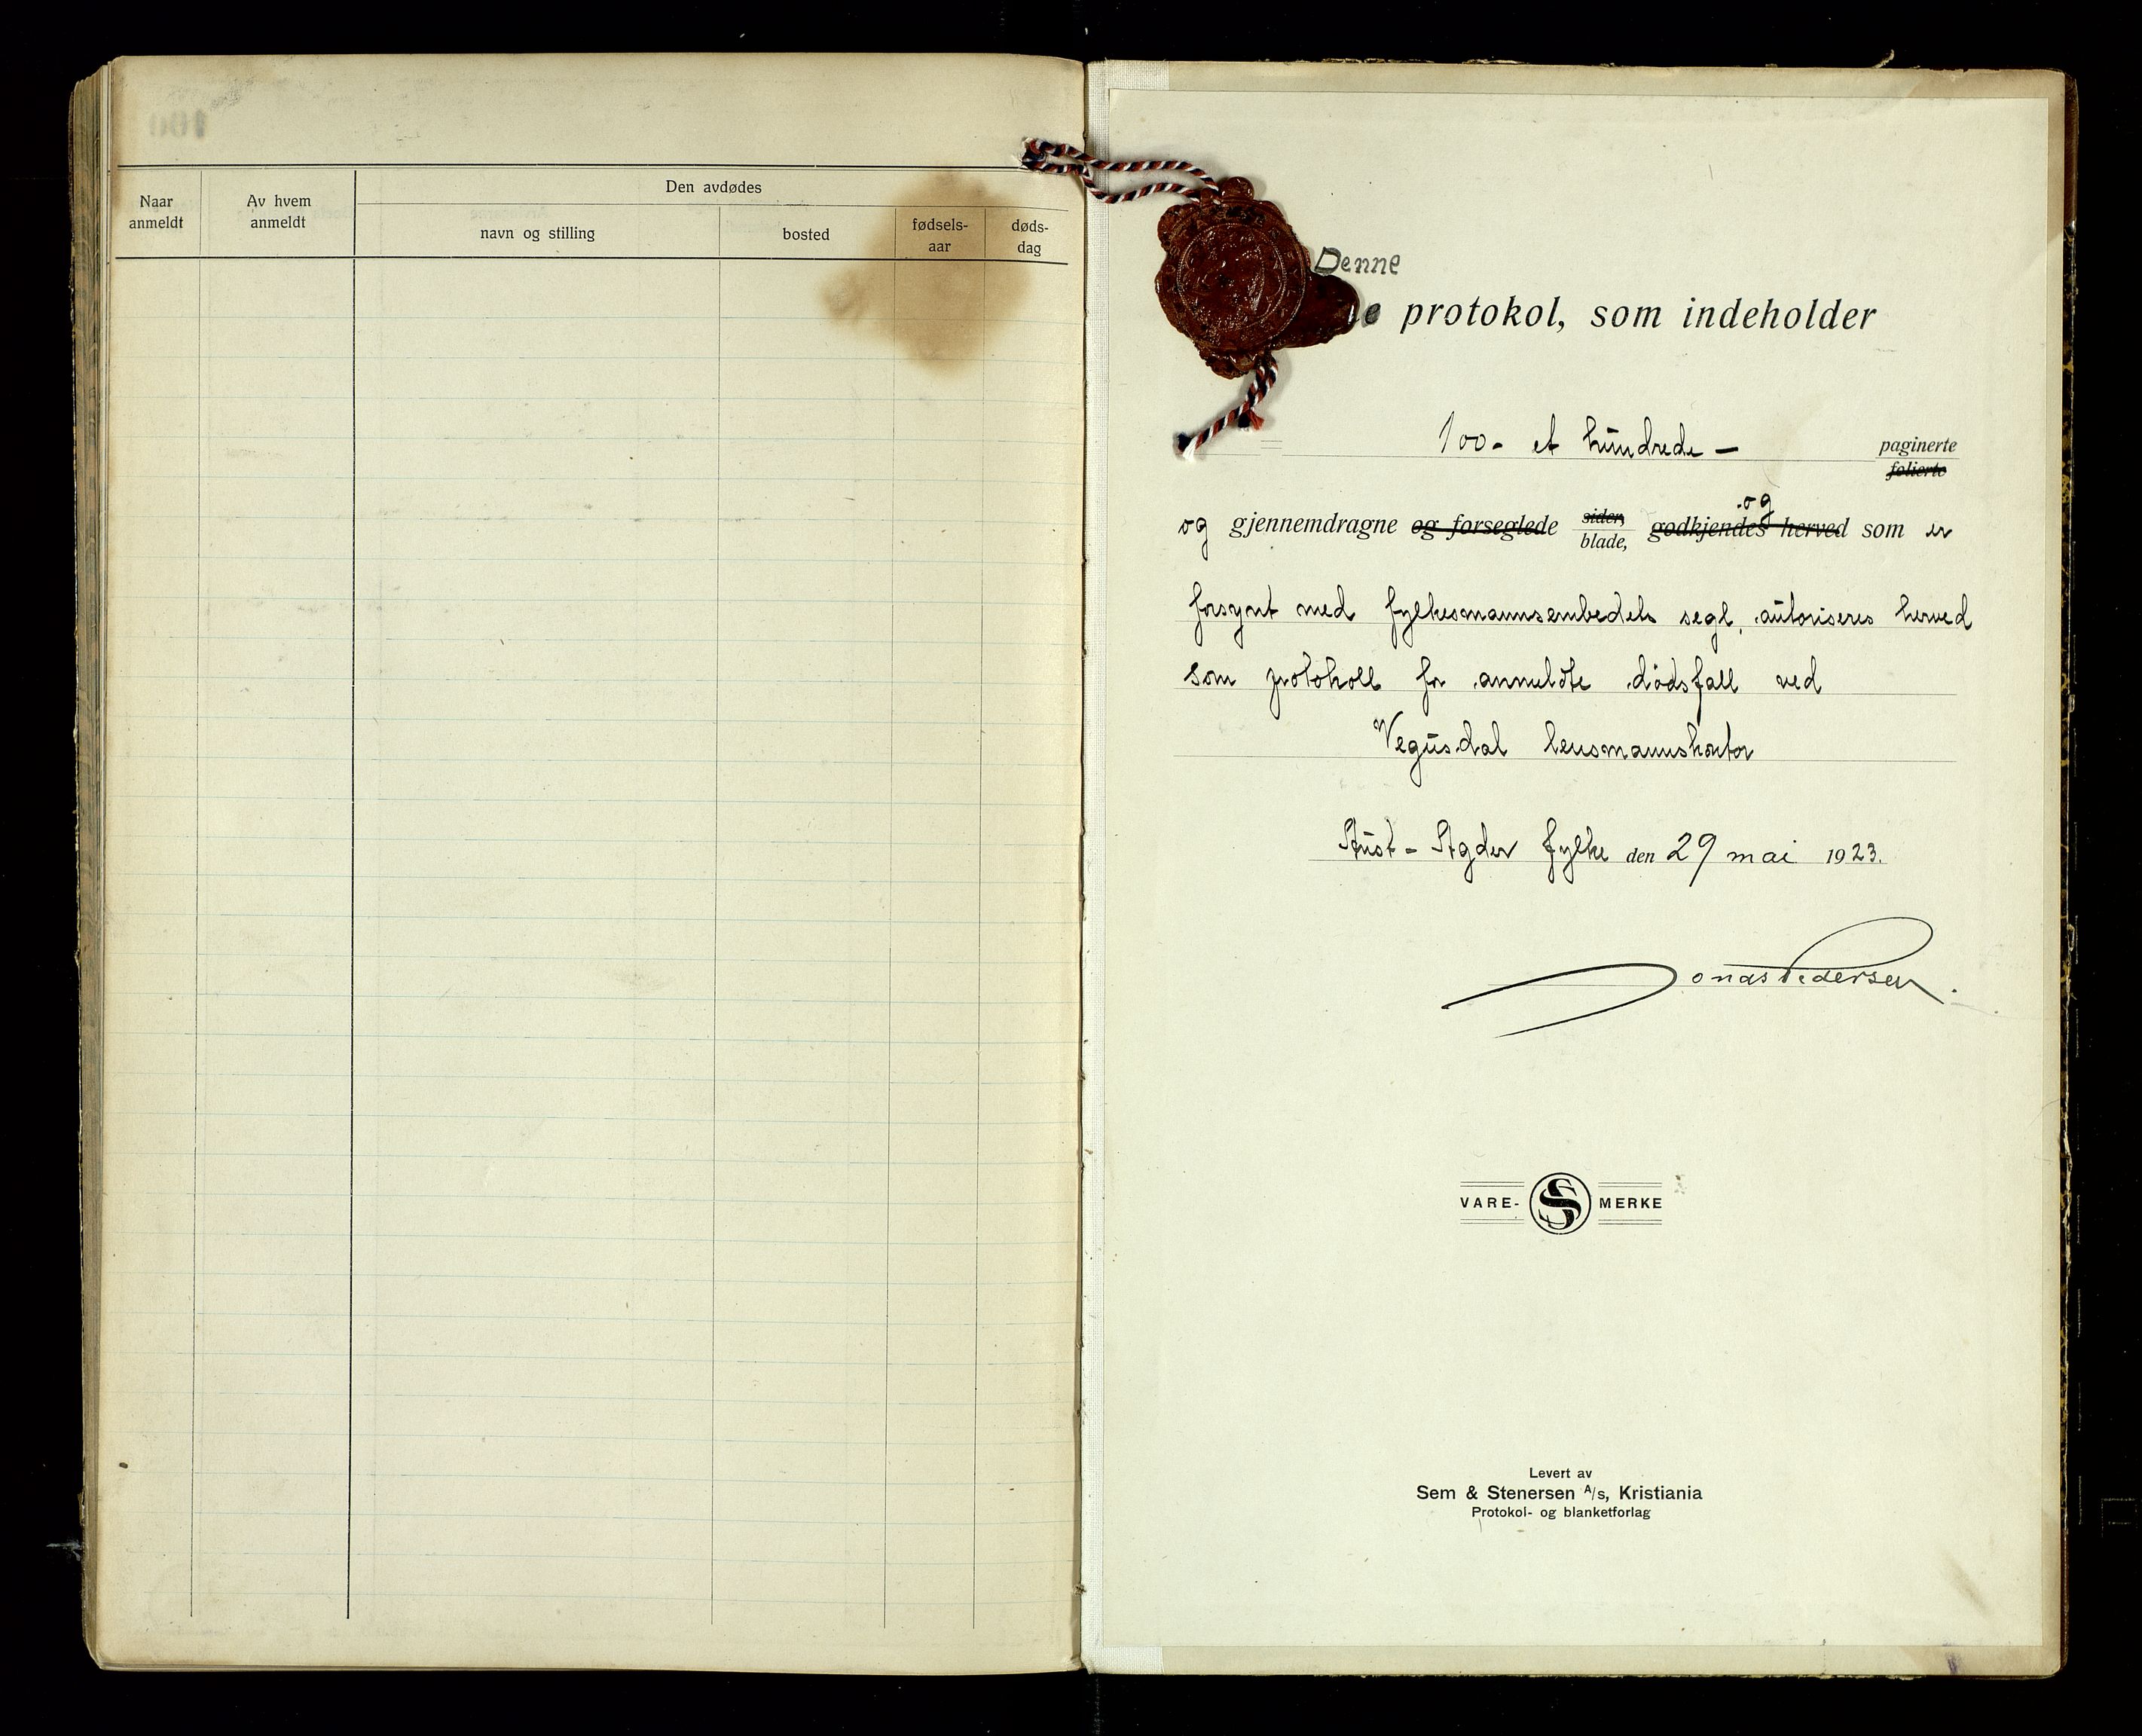 Naar anmeldt
Av hvem anmeldt
Den avdødes
navn og stilling
bosted
fødsels-aar
døds-dag
Denne
e protokol, som indeholder
100- et hundrede -
paginerte
folierte
og gjennemdragne og forseglede sider, blade, godkjendes herved og som er
forsynt med fylkesmannsembedets segl, autoriseres herved
som protokoll for anmeldte dødsfall ved
Vegusdal lensmannskontor
Aust-Agder fylke den 29 mai 1923.
Jonas Pedersen.
VARE- S MERKE
Levert av
Sem & Stenersen A/s, Kristiania
Protokol- og blanketforlag